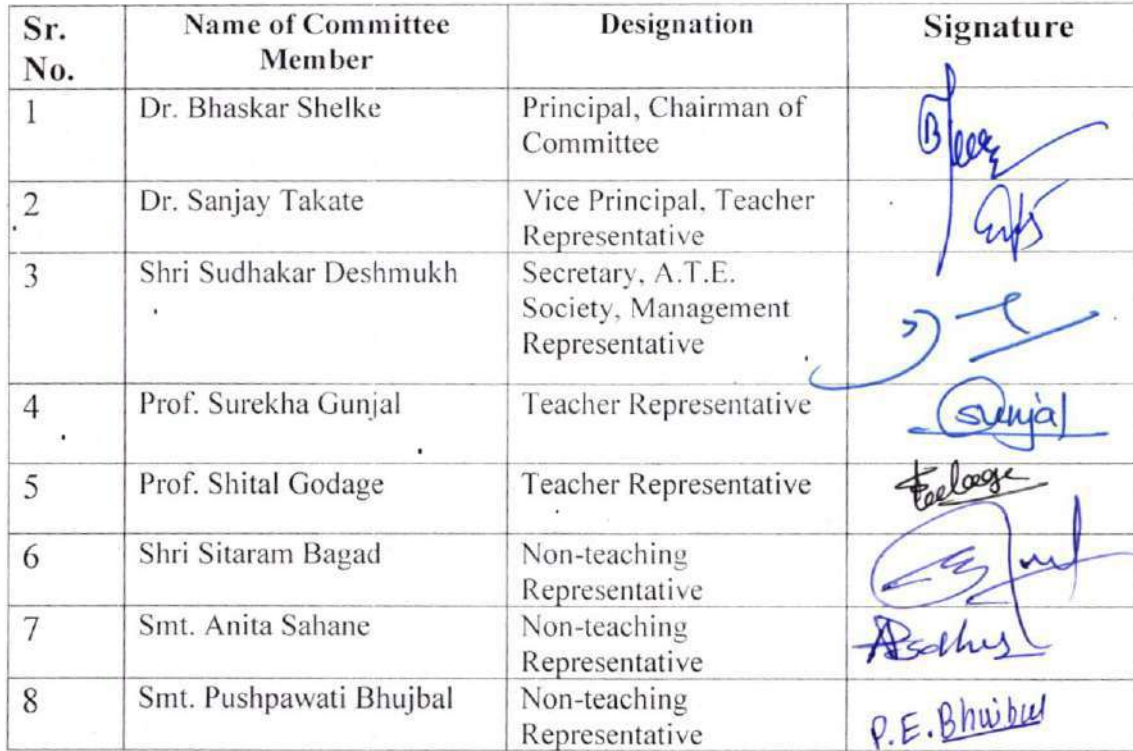 Sr. Name of Committee Designation Signature
No. Member
1 Dr. Bhaskar Shelke Principal, Chairman of
Committee
2 Dr. Sanjay Takate Vice Principal, Teacher
Representative
3 Shri Sudhakar Deshmukh Secretary, A.T.E.
Society, Management
Representative
4 Prof. Surekha Gunjal Teacher Representative Gunjal
5 Prof. Shital Godage Teacher Representative
6 Shri Sitaram Bagad Non-teaching
Representative
7 Smt. Anita Sahane Non-teaching
Representative
8 Smt. Pushpawati Bhujbal Non-teaching
Representative P.E.Bhujbal